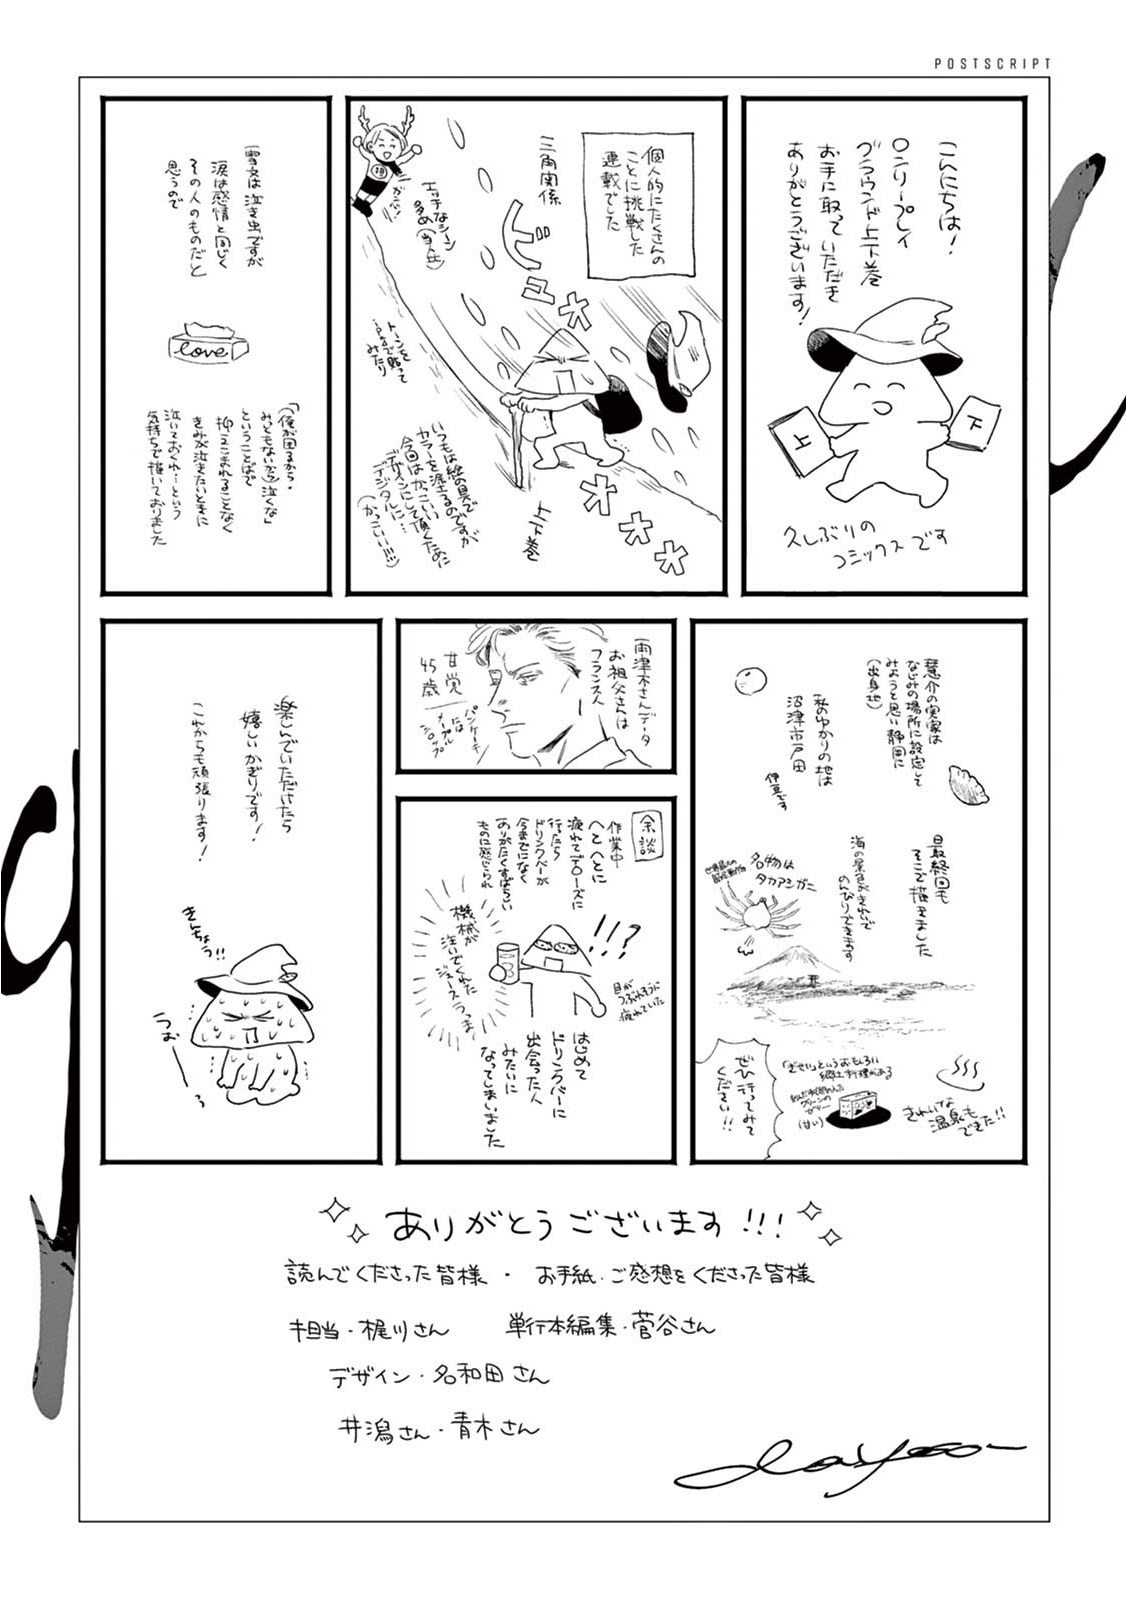 POSTSCRIPT
こんにちは!
〇ンリープレイ
グラウンド上下巻
お手に取っていただき
ありがとうございます!
上
下
久しぶりの
コミックスです
個人的にたくさんの
ことに挑戦した
連載でした
三角関係
エッチなシーン
多め(当人比)
担
ガンバ!
トーンを
…までで貼って
みたり
ビュオオ
オオオオ
上下巻
いつもは絵の具で
カラーを塗るのですが
今回はかっこいい
デザインにして頂くために
デジタルに…
(かっこいい!!!)
雪文は泣き虫ですが
涙は感情と同じく
その人のものだと
思うので
love
「(俺が困るから・
みっともないから)泣くな」
ということばで
抑えこまれることなく
きみが泣きたいときに
泣いておくれ…という
気持ちで描いておりました
慧介の実家は
なじみの場所に設定して
みようと思い静岡に
(出身地)
私のゆかりの地は
沼津市戸田
伊豆です
最終回も
そこで描きました
海の景色がきれいで
のんびりできます
名物は
タカアシガニ
世界最大の
節足動物
きれいな
温泉も
できた!!
「ぎせい」というおもしろい
郷土料理がある
(甘い)
ぜひ行ってみて
ください!!
雨津木さんデータ
お祖父さんは
フランス人
甘党
45歳
パンケーキ
には
メープル
シロップ
余談
作業中
へとへとに
疲れてデ〇ーズに
行ったら
ドリンクバーが
今までになく
ありがたくすばらしい
ものに感じられ
!!?
機械が
注いでくれた
ジュースうっま
目が
つぶれそうに
疲れていた
はじめて
ドリンクバーに
出会った人
みたいに
なってしまいました
楽しんでいただけたら
嬉しいかぎりです!
これからも頑張ります!
きんちょう!!
つおーーろ
ありがとうございます!!!
読んでくださった皆様・お手紙・ご感想をくださった皆様
担当・梶川さん 単行本編集・菅谷さん
デザイン・名和田さん
井潟さん・青木さん